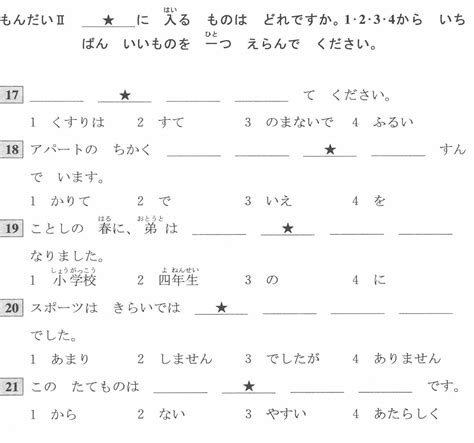 もんだいⅡ ＿＿★＿＿に 入る ものは どれですか。1・2・3・4から いち
ばん いいものを 一つ えらんで ください。
17 ＿＿＿ ＿★＿ ＿＿＿ ＿＿＿ て ください。
1 くすりは 2 すて 3 のまないで 4 ふるい
18 アパートの ちかく ＿＿＿ ＿＿＿ ＿★＿ ＿＿＿ すん
で います。
1 かりて 2 で 3 いえ 4 を
19 ことしの 春に、弟は ＿＿＿ ＿★＿ ＿＿＿ ＿＿＿
なりました。
1 小学校 2 四年生 3 の 4 に
20 スポーツは きらいでは ＿★＿ ＿＿＿ ＿＿＿ ＿＿＿
でした。
1 あまり 2 しません 3 でしたが 4 ありません
21 この たてものは ＿＿＿ ＿★＿ ＿＿＿ ＿＿＿ です。
1 から 2 ない 3 やすい 4 あたらしく